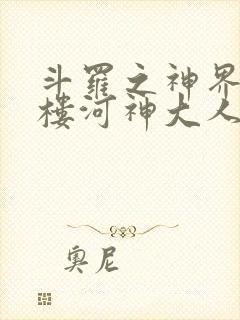 斗羅之神界
樓河神大人
奧尼